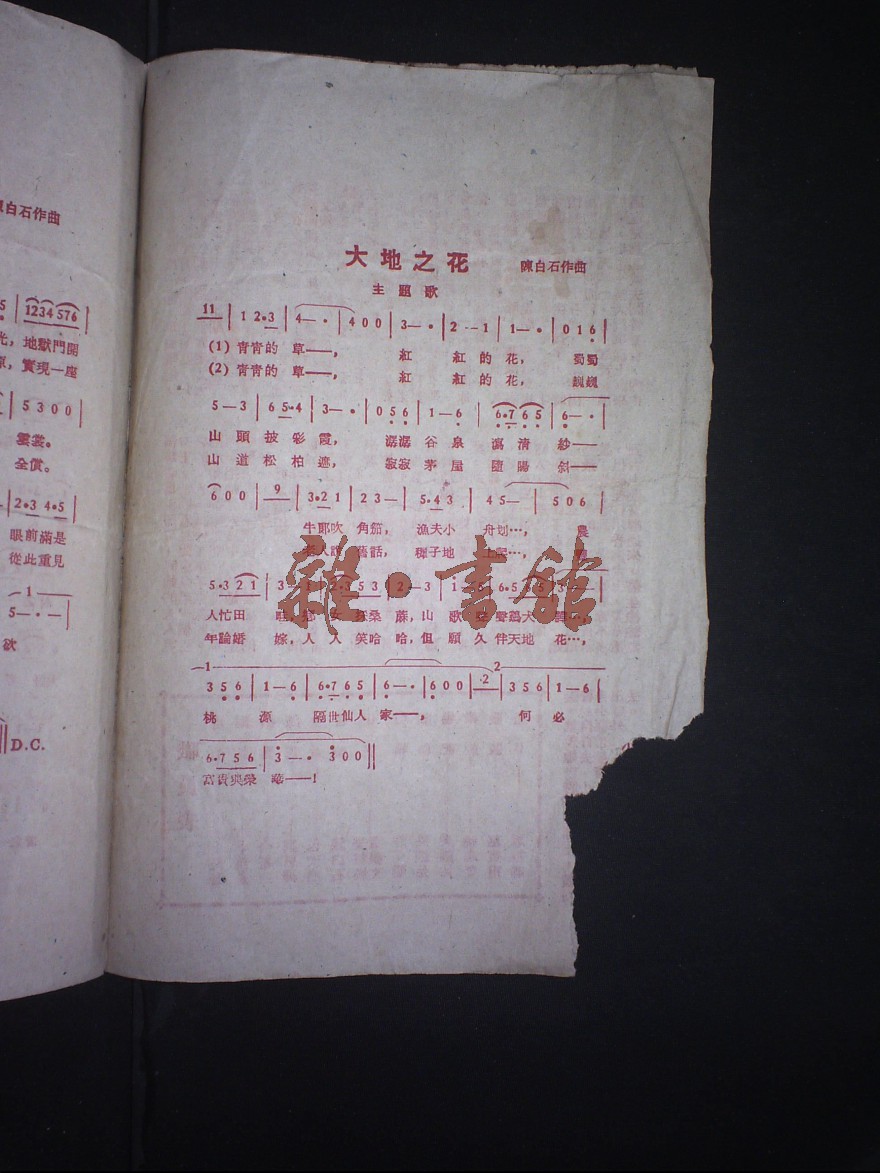 陳白石作曲
5 | 1234 576 |
光, 地獄門開
實現一座
| 5 3 0 0 |
雲裳。
全償。
| 2·3 4·5 |
眼前滿是
從此重見
1
5—·— |
欲
D.C.
大地之花
陳白石作曲
主題歌
11 | 1 2·3 | 4—· | 4 0 0 | 3—· | 2·—1 | 1—· | 0 1 6
(1) 青青的 草——, 紅 紅的花,
(2) 青青的 草——, 紅 紅的花, 巍巍
5—3 | 6 5·4 | 3—· | 0 5 6 | 1—6 | 6·7 6 5 | 6—·
山頭披彩霞, 潺潺谷泉 清紗——
山道松柏遮, 寂寂茅屋 隨陽斜——
6 0 0 | 9 | 3·2 1 | 2 3— | 5·4 3 | 4 5— | 5 0 6
牛郎吹 角笳, 漁夫小 舟划…, 農
舊話, 稗子地
5·3 2 1 | 3—1 | 2·3 5 3 | 2—3 | 1
人忙田 桑蔴, 山歌
年論婚 嫁, 人人笑哈哈, 但願久伴天地 花…,
雜·書館
1 2
3 5 6 | 1—6 | 6·7 6 5 | 6—· | 6 0 0 | 2 | 3 5 6 | 1—6
桃源 隔世仙人家——, 何必
6·7 5 6 | 3—· | 3 0 0 ||
富貴與榮 華——!